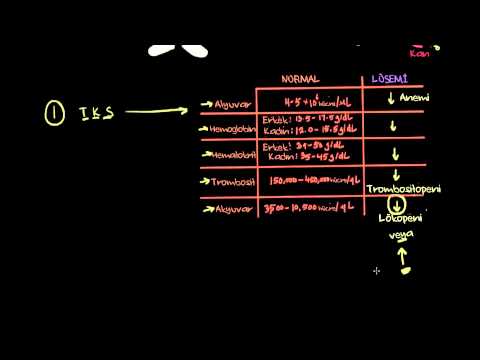 Kan
NORMAL LÖSEMİ
① TKS → Alyuvar 4-5 x 10⁶ hücre/µL ↓ Anemi
Hemoglobin Erkek: 13.5-17.5 g/dL ↓
Kadın: 12.0-15.5 g/dL
Hematokrit Erkek: 39-50 g/dL ↓
Kadın: 35-45 g/dL
Trombosit 150,000-450,000 hücre/µL ↓
Trombositopeni
Akyuvar 3500-10,500 hücre/µL ↓
Lökopeni
veya
↑